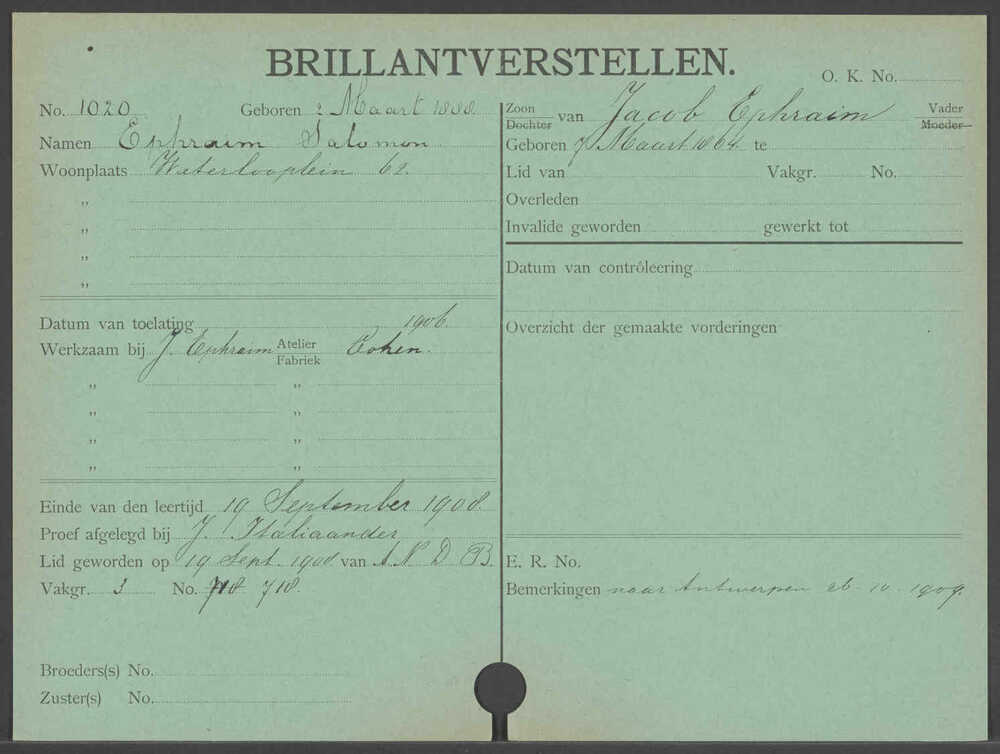 BRILLANTVERSTELLEN.
O. K. No.
No. 1020 Geboren 2 Maart 1888.
Namen Ephraim Salomon
Woonplaats Waterlooplein 62.
„
„
„
„
Datum van toelating 1906.
Werkzaam bij J. Ephraim Atelier Fabriek Cohen.
„ „
„ „
„ „
„ „
Einde van den leertijd 19 September 1908.
Proef afgelegd bij J. Italiaander
Lid geworden op 19 Sept. 1908 van A N D B.
Vakgr. 3 No. 718 718.
Broeders(s) No.
Zuster(s) No.
Zoon Dochter van Jacob Ephraim Vader Moeder
Geboren 7 Maart 1864 te
Lid van Vakgr. No.
Overleden
Invalide geworden gewerkt tot
Datum van contrôleering
Overzicht der gemaakte vorderingen
E. R. No.
Bemerkingen naar Antwerpen 26-10-1909.